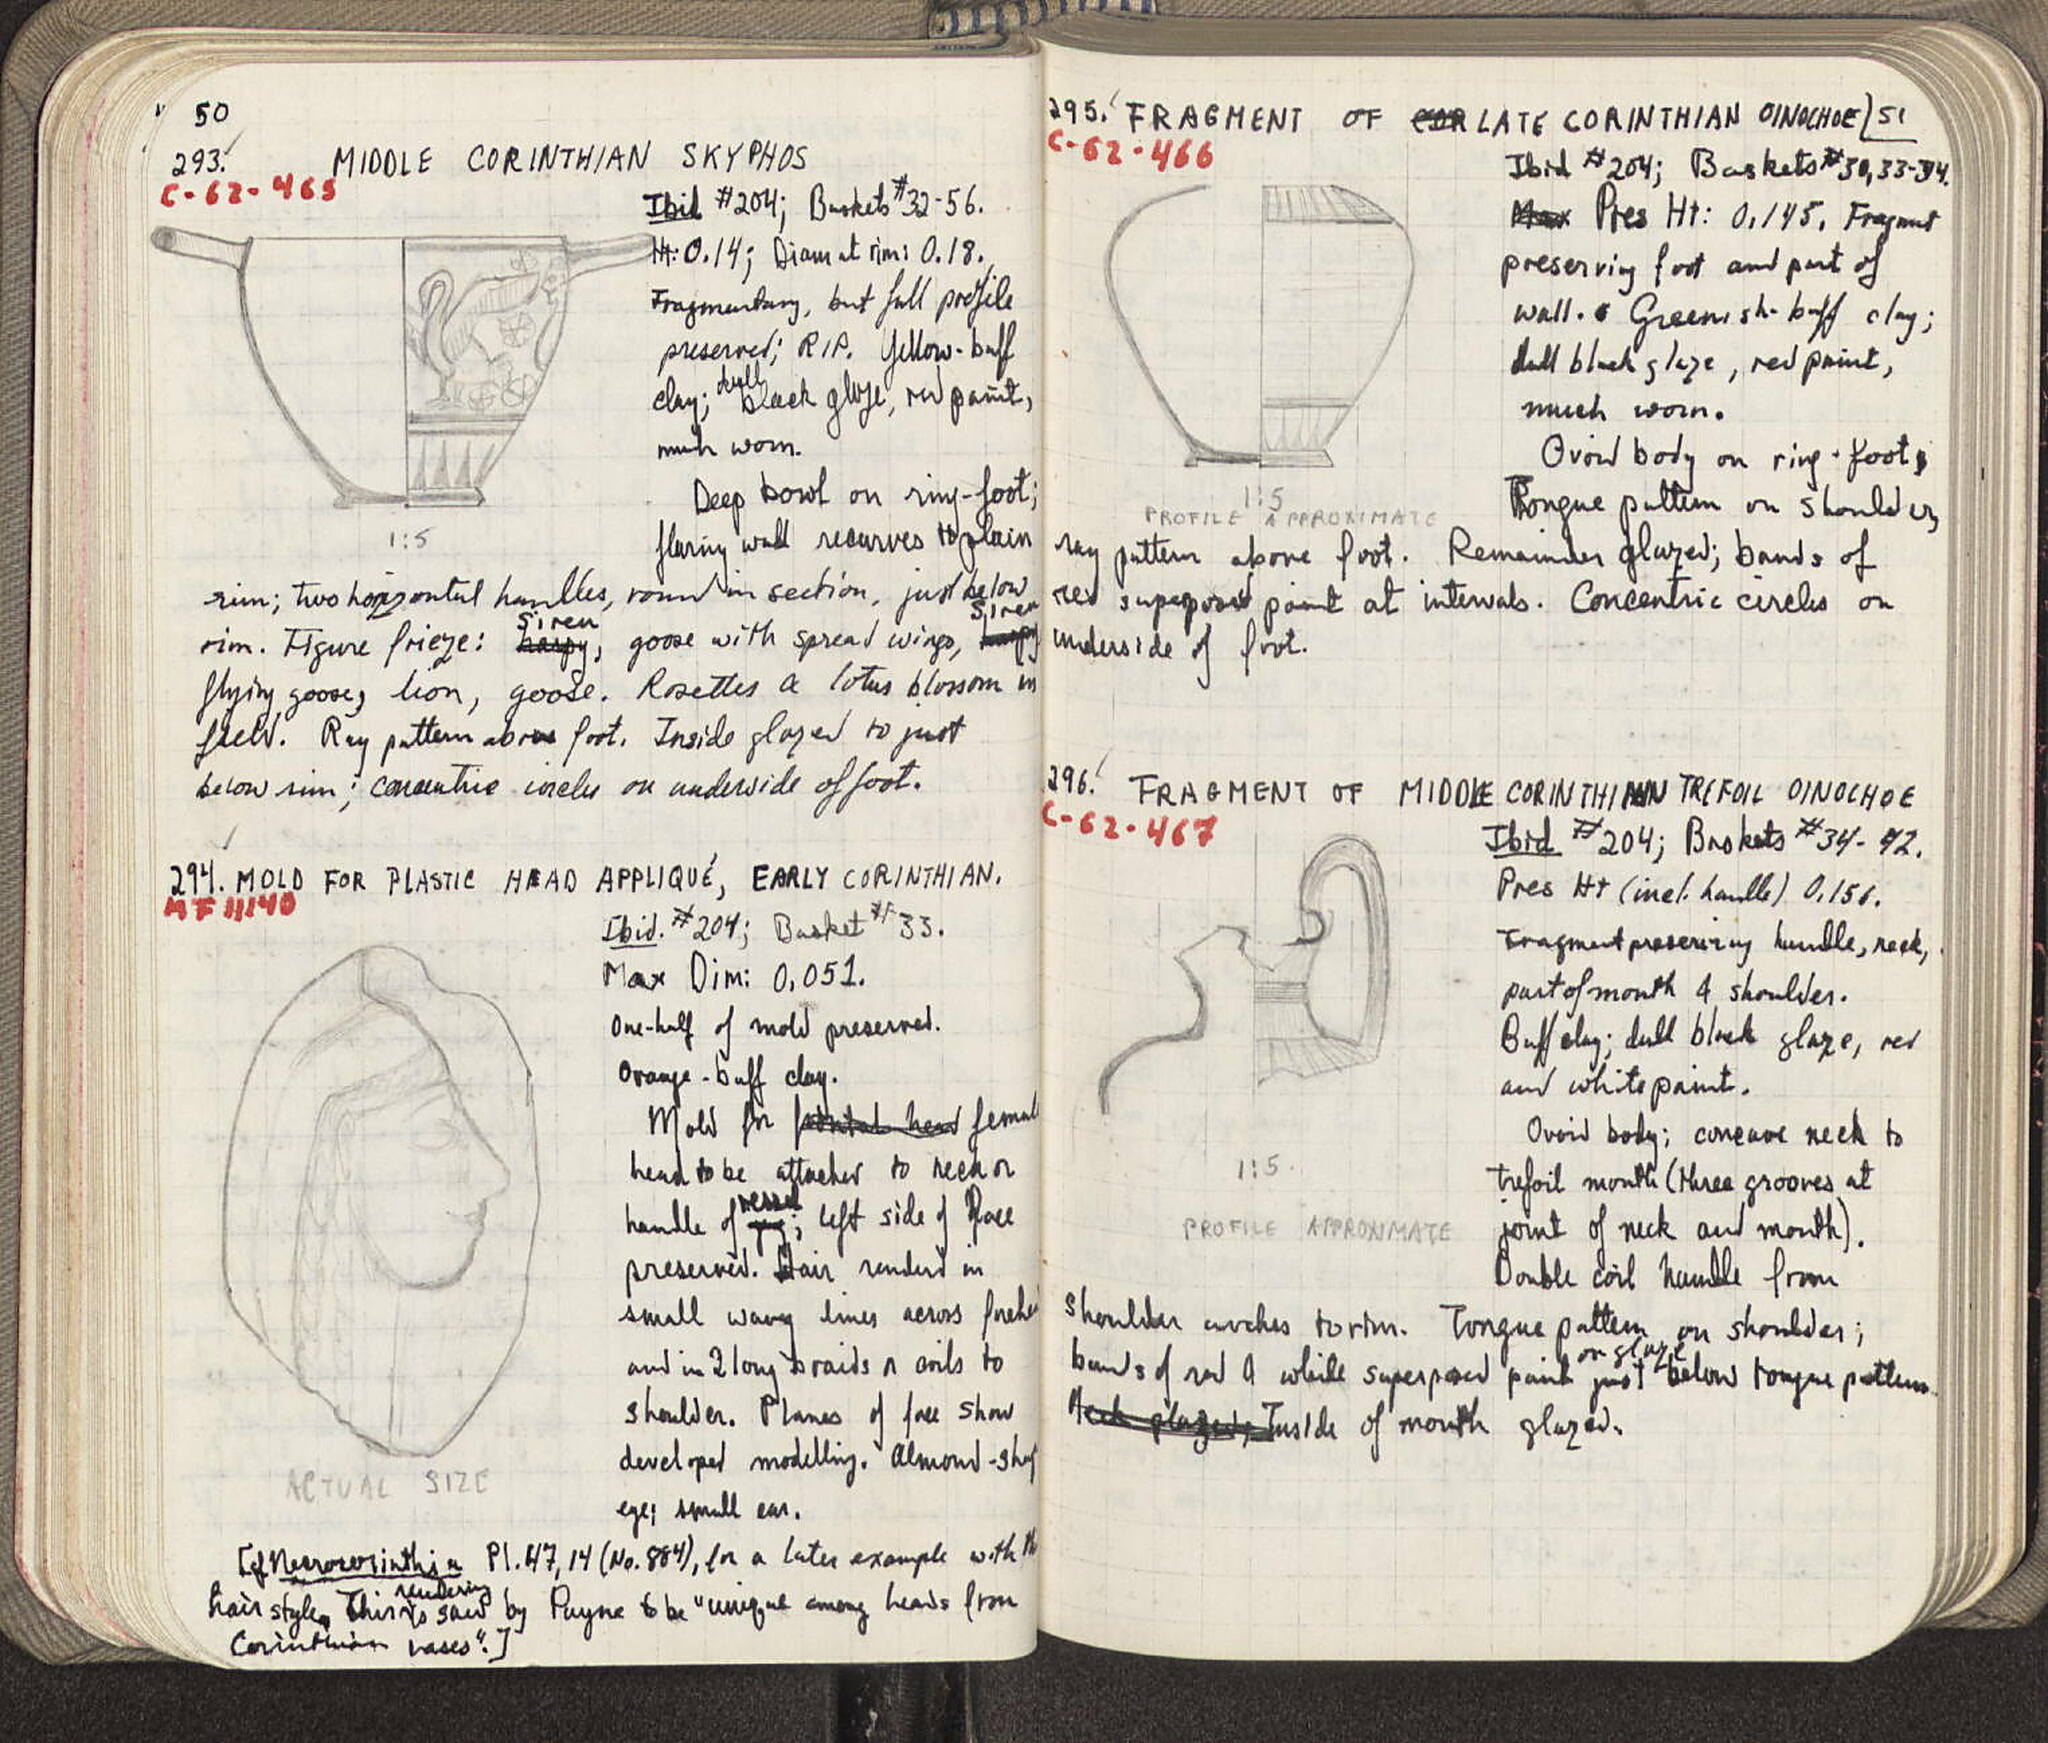 50
293. MIDDLE CORINTHIAN SKYPHOS
C-62-465
Ibid #204; Baskets #32-56.
Ht: 0.14; Diam at rim: 0.18.
Fragmentary, but full profile
preserved; R.I.P. Yellow-buff
clay; dull black glaze, red paint,
much worn.
Deep bowl on ring-foot;
flaring wall recurves to plain
1:5
rim; two horizontal handles, round in section, just below
rim. Figure frieze: harpy, siren goose with spread wings, harpy siren
flying goose, lion, goose. Rosettes & lotus blossom in
field. Ray pattern above foot. Inside glazed to just
below rim; concentric circles on underside of foot.
294. MOLD FOR PLASTIC HEAD APPLIQUÉ, EARLY CORINTHIAN.
MF 11140
Ibid. #204; Basket #33.
Max Dim: 0.051.
One-half of mold preserved.
Orange-buff clay.
Mold for frontal head female
head to be attached to neck or
handle of vessel; left side of face
preserved. Hair rendered in
small wavy lines across forehe
and in 2 long braids or coils to
shoulder. Planes of face show
developed modelling. Almond-shap
eye; small ear.
ACTUAL SIZE
[cf Necrocorinthia Pl. 47, 14 (No. 884), for a later example with th
hair style. This rendering is said by Payne to be "unique among heads from
Corinthian vases".]
295. FRAGMENT OF COR LATE CORINTHIAN OINOCHOE 51
C-62-466
Ibid #204; Baskets #30, 33-34.
Max Pres Ht: 0.145. Fragment
preserving foot and part of
wall. Greenish-buff clay;
dull black glaze, red paint,
much worn.
Ovoid body on ring-foot;
Tongue pattern on shoulder,
1:5
PROFILE APPROXIMATE
ray pattern above foot. Remainder glazed; bands of
red superposed paint at intervals. Concentric circles on
underside of foot.
296. FRAGMENT OF MIDDLE CORINTHIAN TREFOIL OINOCHOE
C-62-467
Ibid #204; Baskets #34-42.
Pres Ht (incl. handle) 0.156.
Fragment preserving handle, neck,
part of mouth & shoulder.
Buff clay; dull black glaze, red
and white paint.
Ovoid body; concave neck to
trefoil mouth (three grooves at
joint of neck and mouth).
Double coil handle from
1:5.
PROFILE APPROXIMATE
shoulder arches to rim. Tongue pattern on shoulder;
bands of red & white superposed paint on glaze just below tongue pattern.
Neck glazed; Inside of mouth glazed.